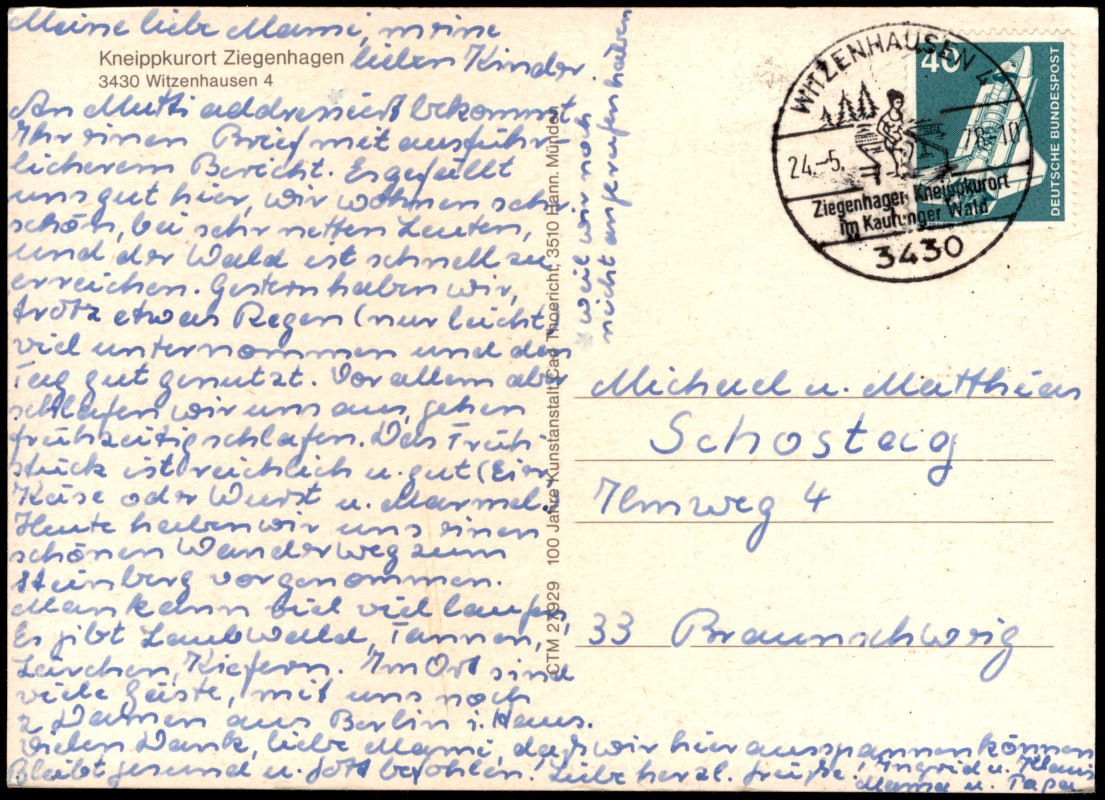 Meine liebe Mami, meine
lieben Kinder.
Kneippkurort Ziegenhagen
3430 Witzenhausen 4
An Mutti addressiert bekommt
Ihr einen Brief mit ausführ-
licherem Bericht. Es gefällt
uns gut hier, wir wohnen sehr
schön, bei sehr netten Leuten,
und der Wald ist schnell zu
erreichen. Gestern haben wir,
trotz etwas Regen (nur leicht)
viel unternommen und den
Tag gut genutzt. Vor allem aber
schlafen wir uns aus, gehen
frühzeitig schlafen. Das Früh-
stück ist reichlich u. gut (Eier
Käse oder Wurst u. Marmel.)
Heute haben wir uns einen
schönen Wanderweg zum
Steinberg vorgenommen.
Man kann viel viel laufen,
Es gibt Laubwald, Tannen,
Lärchen, Kiefern. Im Ort sind
viele Gäste, mit uns noch
2 Damen aus Berlin i. Haus.
Vielen Dank, liebe Mami, daß wir hier ausspannen können
Bleibt gesund u. Gott befohlen. Liebe herzl. Grüße, Ingrid u. Klaus
Mama u. Papa
* weil wir noch
nicht angerufen haben
CTM 27929 100 Jahre Kunstanstalt Carl Thoericht, 3510 Hann. Münden
WITZENHAUSEN 4
24.-5. 78-10
Ziegenhagen, Kneippkurort
im Kaufunger Wald
3430
40
DEUTSCHE BUNDESPOST
Michael u. Matthias
Schostag
Ilmweg 4
33 Braunschweig